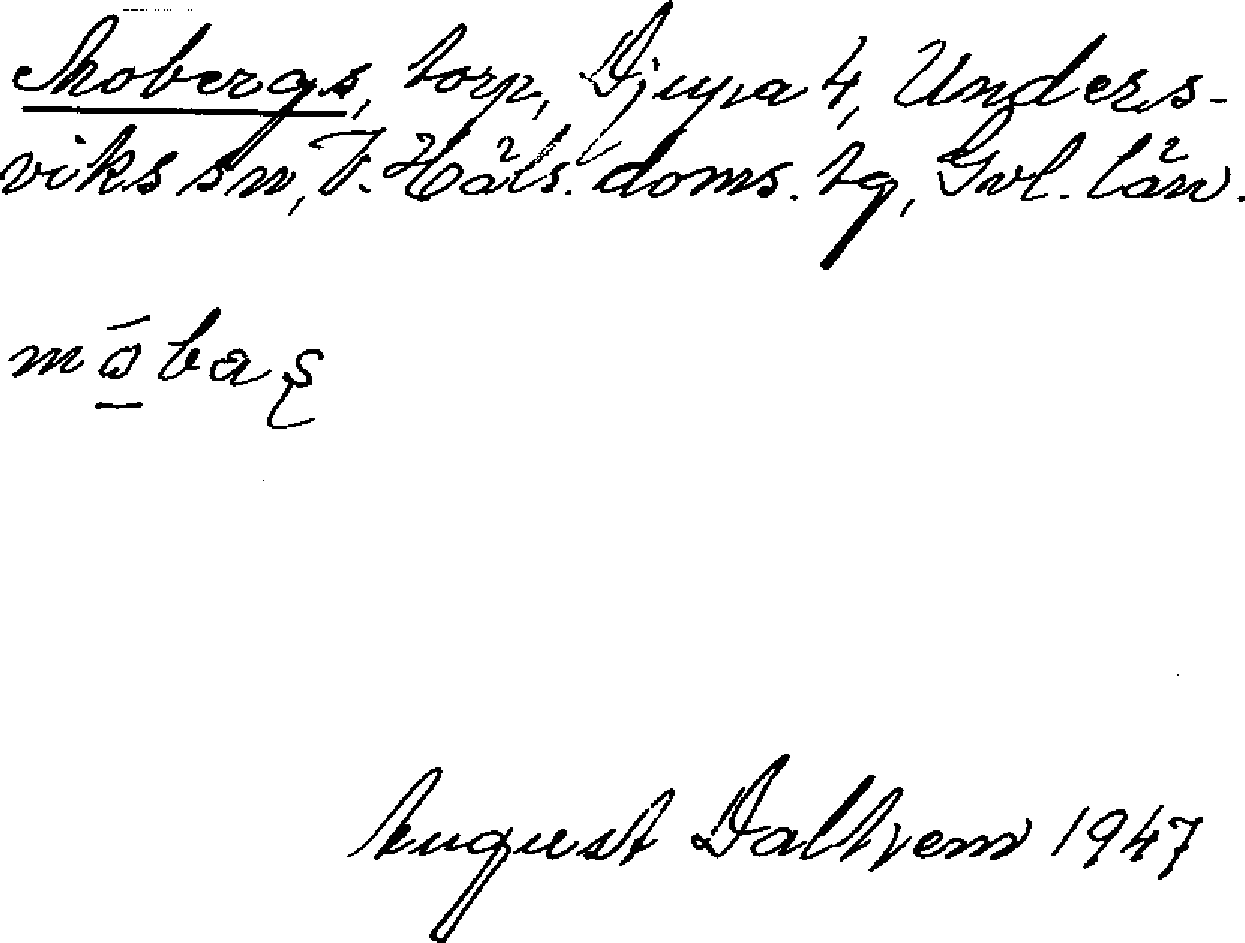 Mobergs, torp, Djupa 4, Unders-
viks sn, V. Häls. doms. tg, Gvl. län.
móbaș
August Daltjem 1947